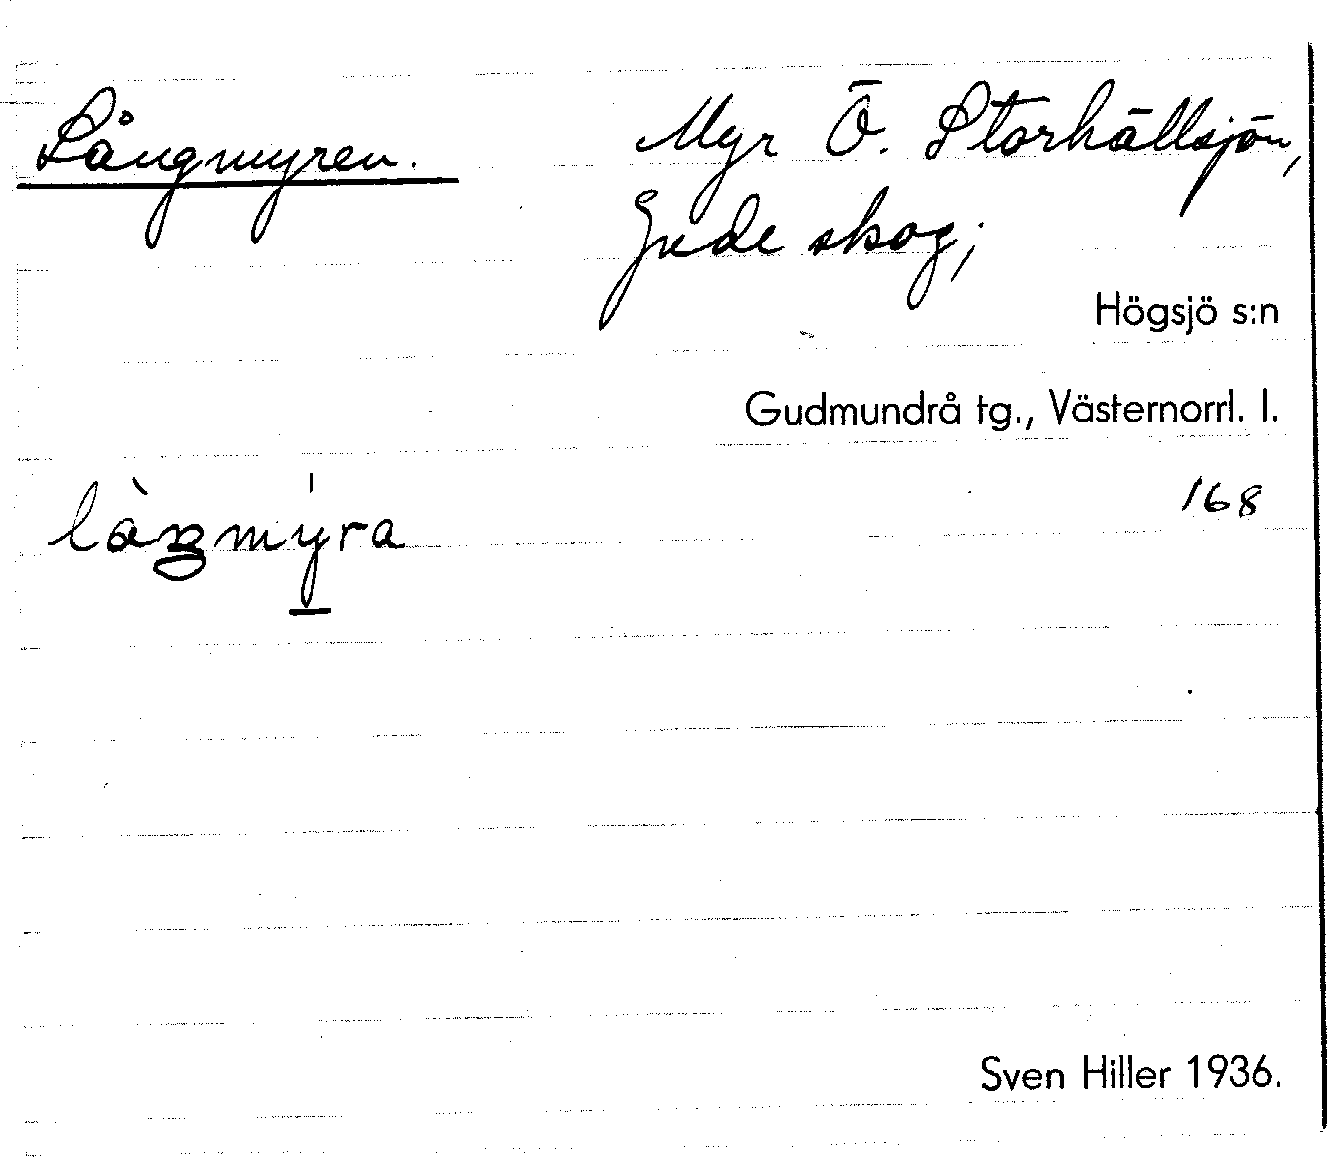 Långmyren.
Myr Ö. Storhällsjön,
Gude skog;
Högsjö s:n
Gudmundrå tg., Västernorrl. l.
168
Sven Hiller 1936.